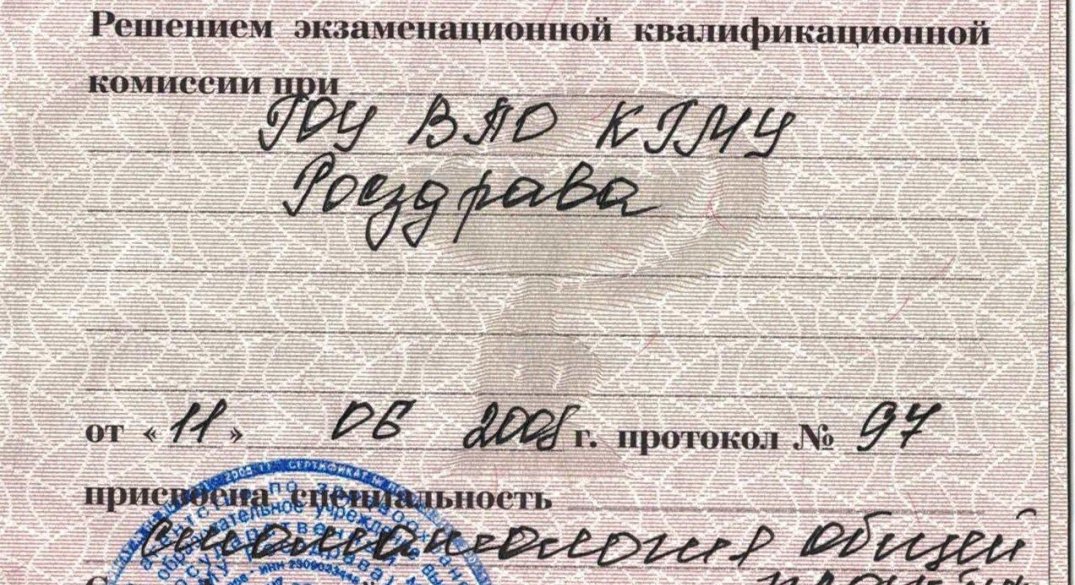 Решением экзаменационной квалификационной
комиссии при
ГОУ ВПО КГМУ
Росздрава
от «11» 06 2008 г. протокол № 97
присвоена специальность
стоматология общей